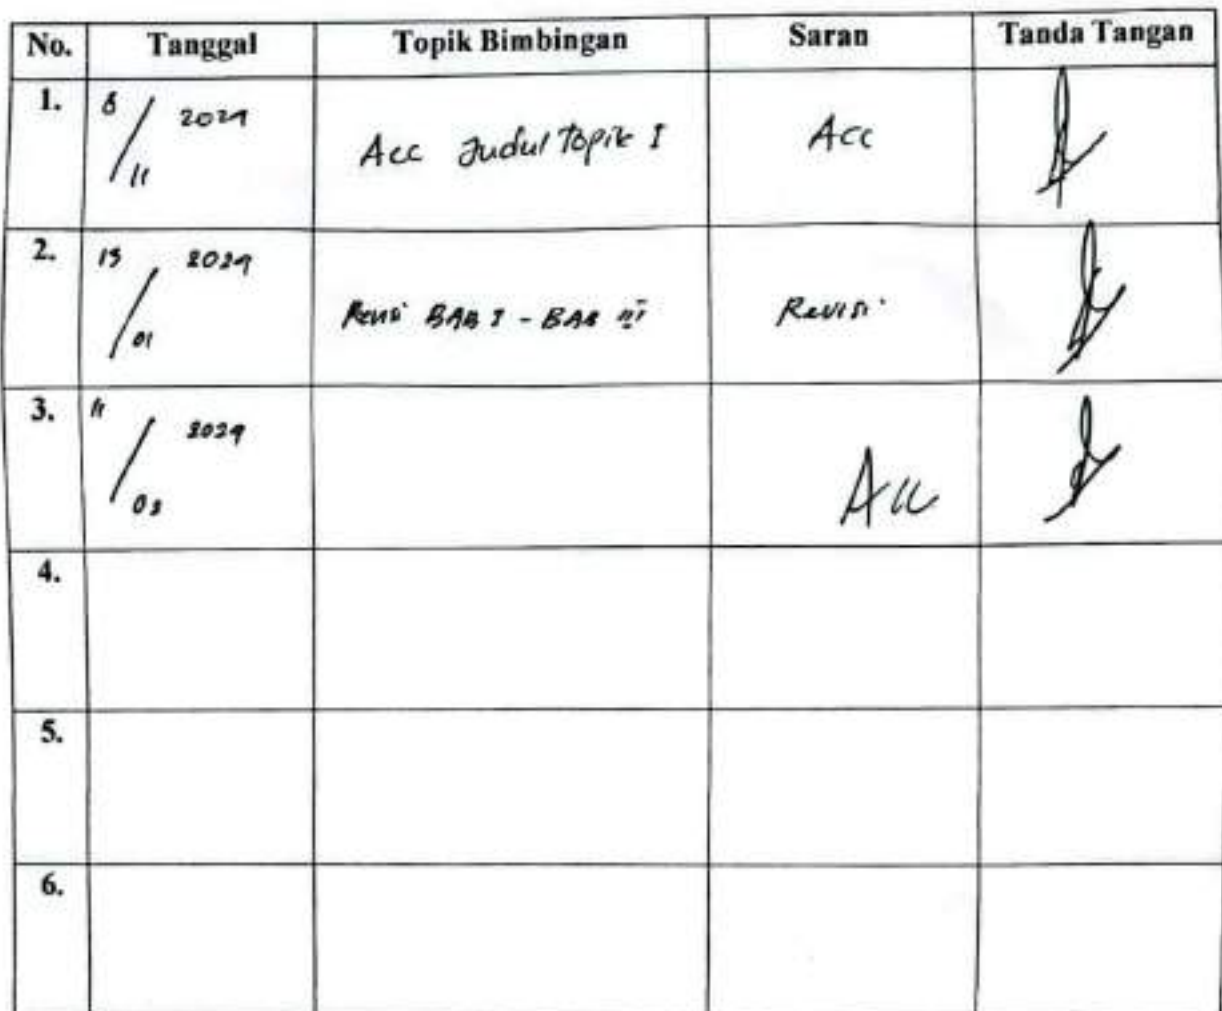 No. Tanggal Topik Bimbingan Saran Tanda Tangan
1. 8 / 11 2024 Acc Judul Topik I Acc
2. 13 / 01 2024 Revisi BAB I - BAB III Revisi
3. 11 / 03 2024 Acc
4.
5.
6.